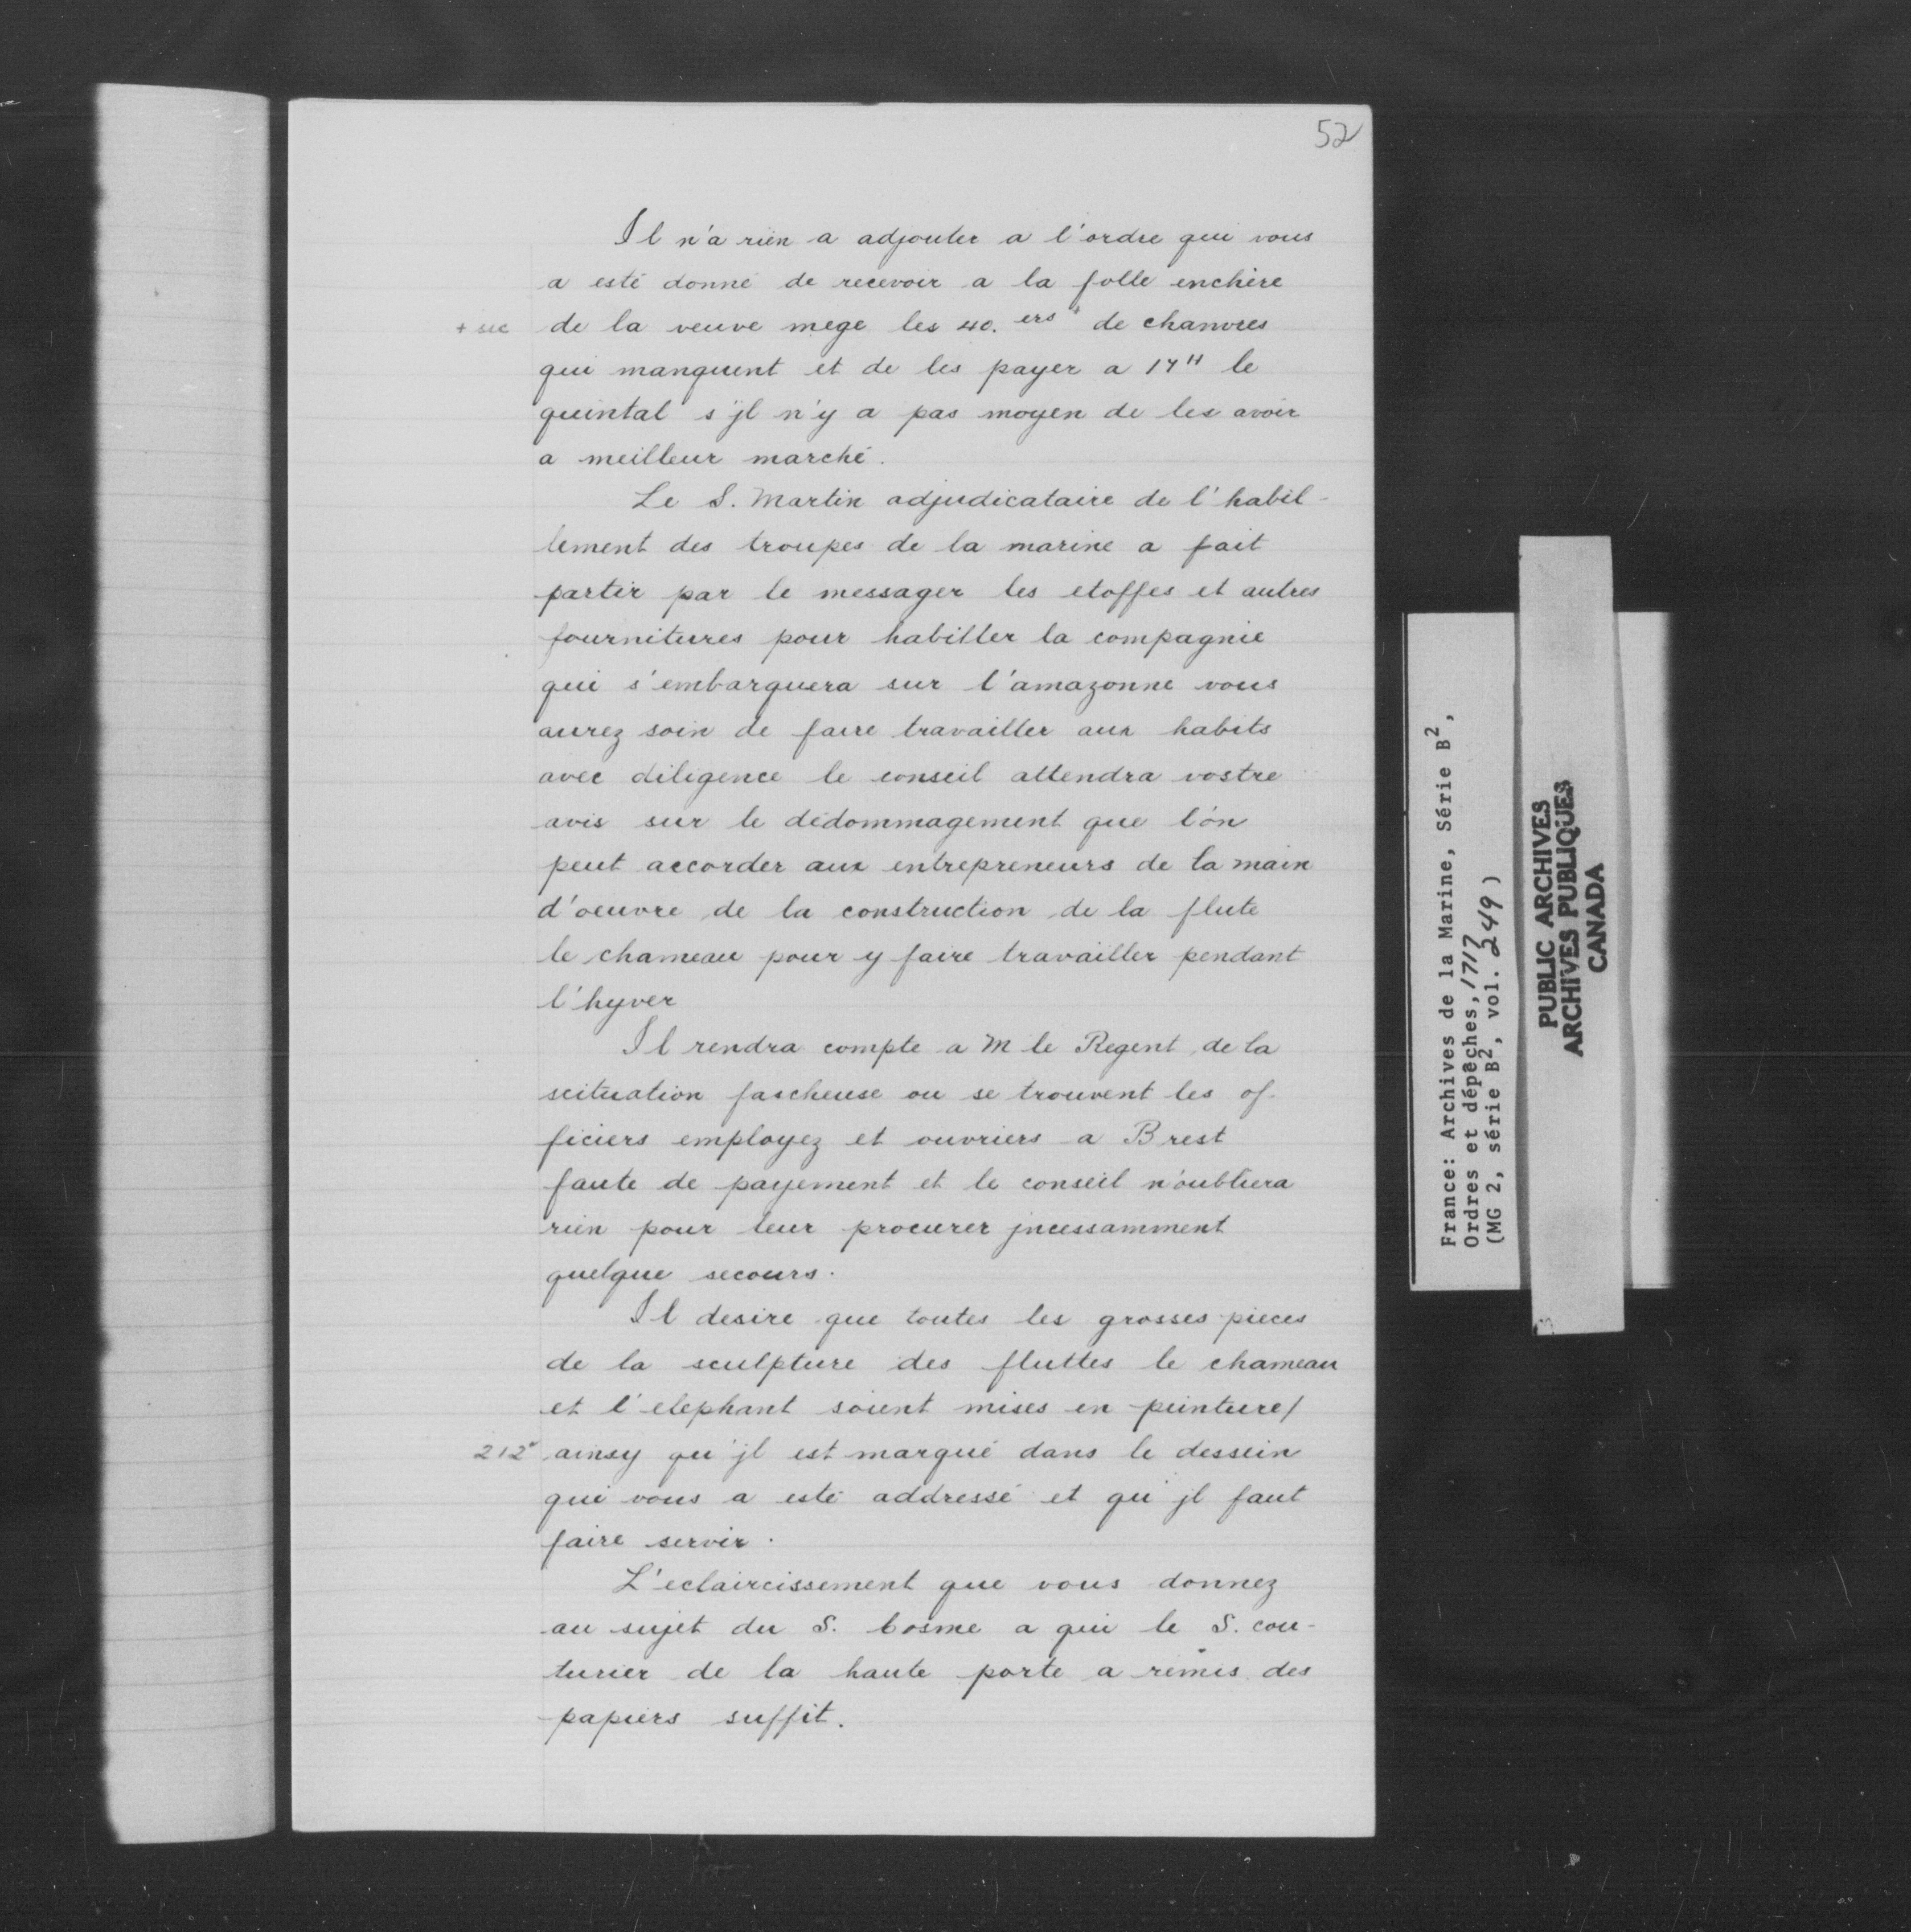 52
Il n'a rien a adjouter a l'ordre qui vous
a esté donné de recevoir a la folle enchère
+ sic de la veuve mege les 40.ers + de chanvres
qui manquent et de les payer a 17tt le
quintal s'jl n'y a pas moyen de les avoir
a meilleur marché.
Le S. Martin adjudicataire de l'habil-
lement des troupes de la marine a fait
partir par le messager les etoffes et autres
fournitures pour habiller la compagnie
qui s'embarquera sur l'amazonne vous
aurez soin de faire travailler aux habits
avec diligence le conseil attendra vostre
avis sur le dédommagement que l'on
peut accorder aux entrepreneurs de la main
d'oeuvre de la construction de la flute
le chameau pour y faire travailler pendant
l'hyver
Il rendra compte a M le Regent de la
scituation fascheuse ou se trouvent les of-
ficiers employez et ouvriers a Brest
faute de payement et le conseil n'oubliera
rien pour leur procurer jncessamment
quelque secours.
Il desire que toutes les grosses pieces
de la sculpture des fluttes le chameau
et l'elephant soient mises en peinture/
212v ainsy qu'jl est marqué dans le dessein
qui vous a esté addressé et qu'jl faut
faire servir.
L'eclaircissement que vous donnez
au sujet du S. Cosme a qui le S. cou-
turier de la haute porte a remis des
papiers suffit.
France: Archives de la Marine, Série B2,
Ordres et dépêches, 1717
(MG 2, série B2, vol. 249)
PUBLIC ARCHIVES
ARCHIVES PUBLIQUES
CANADA